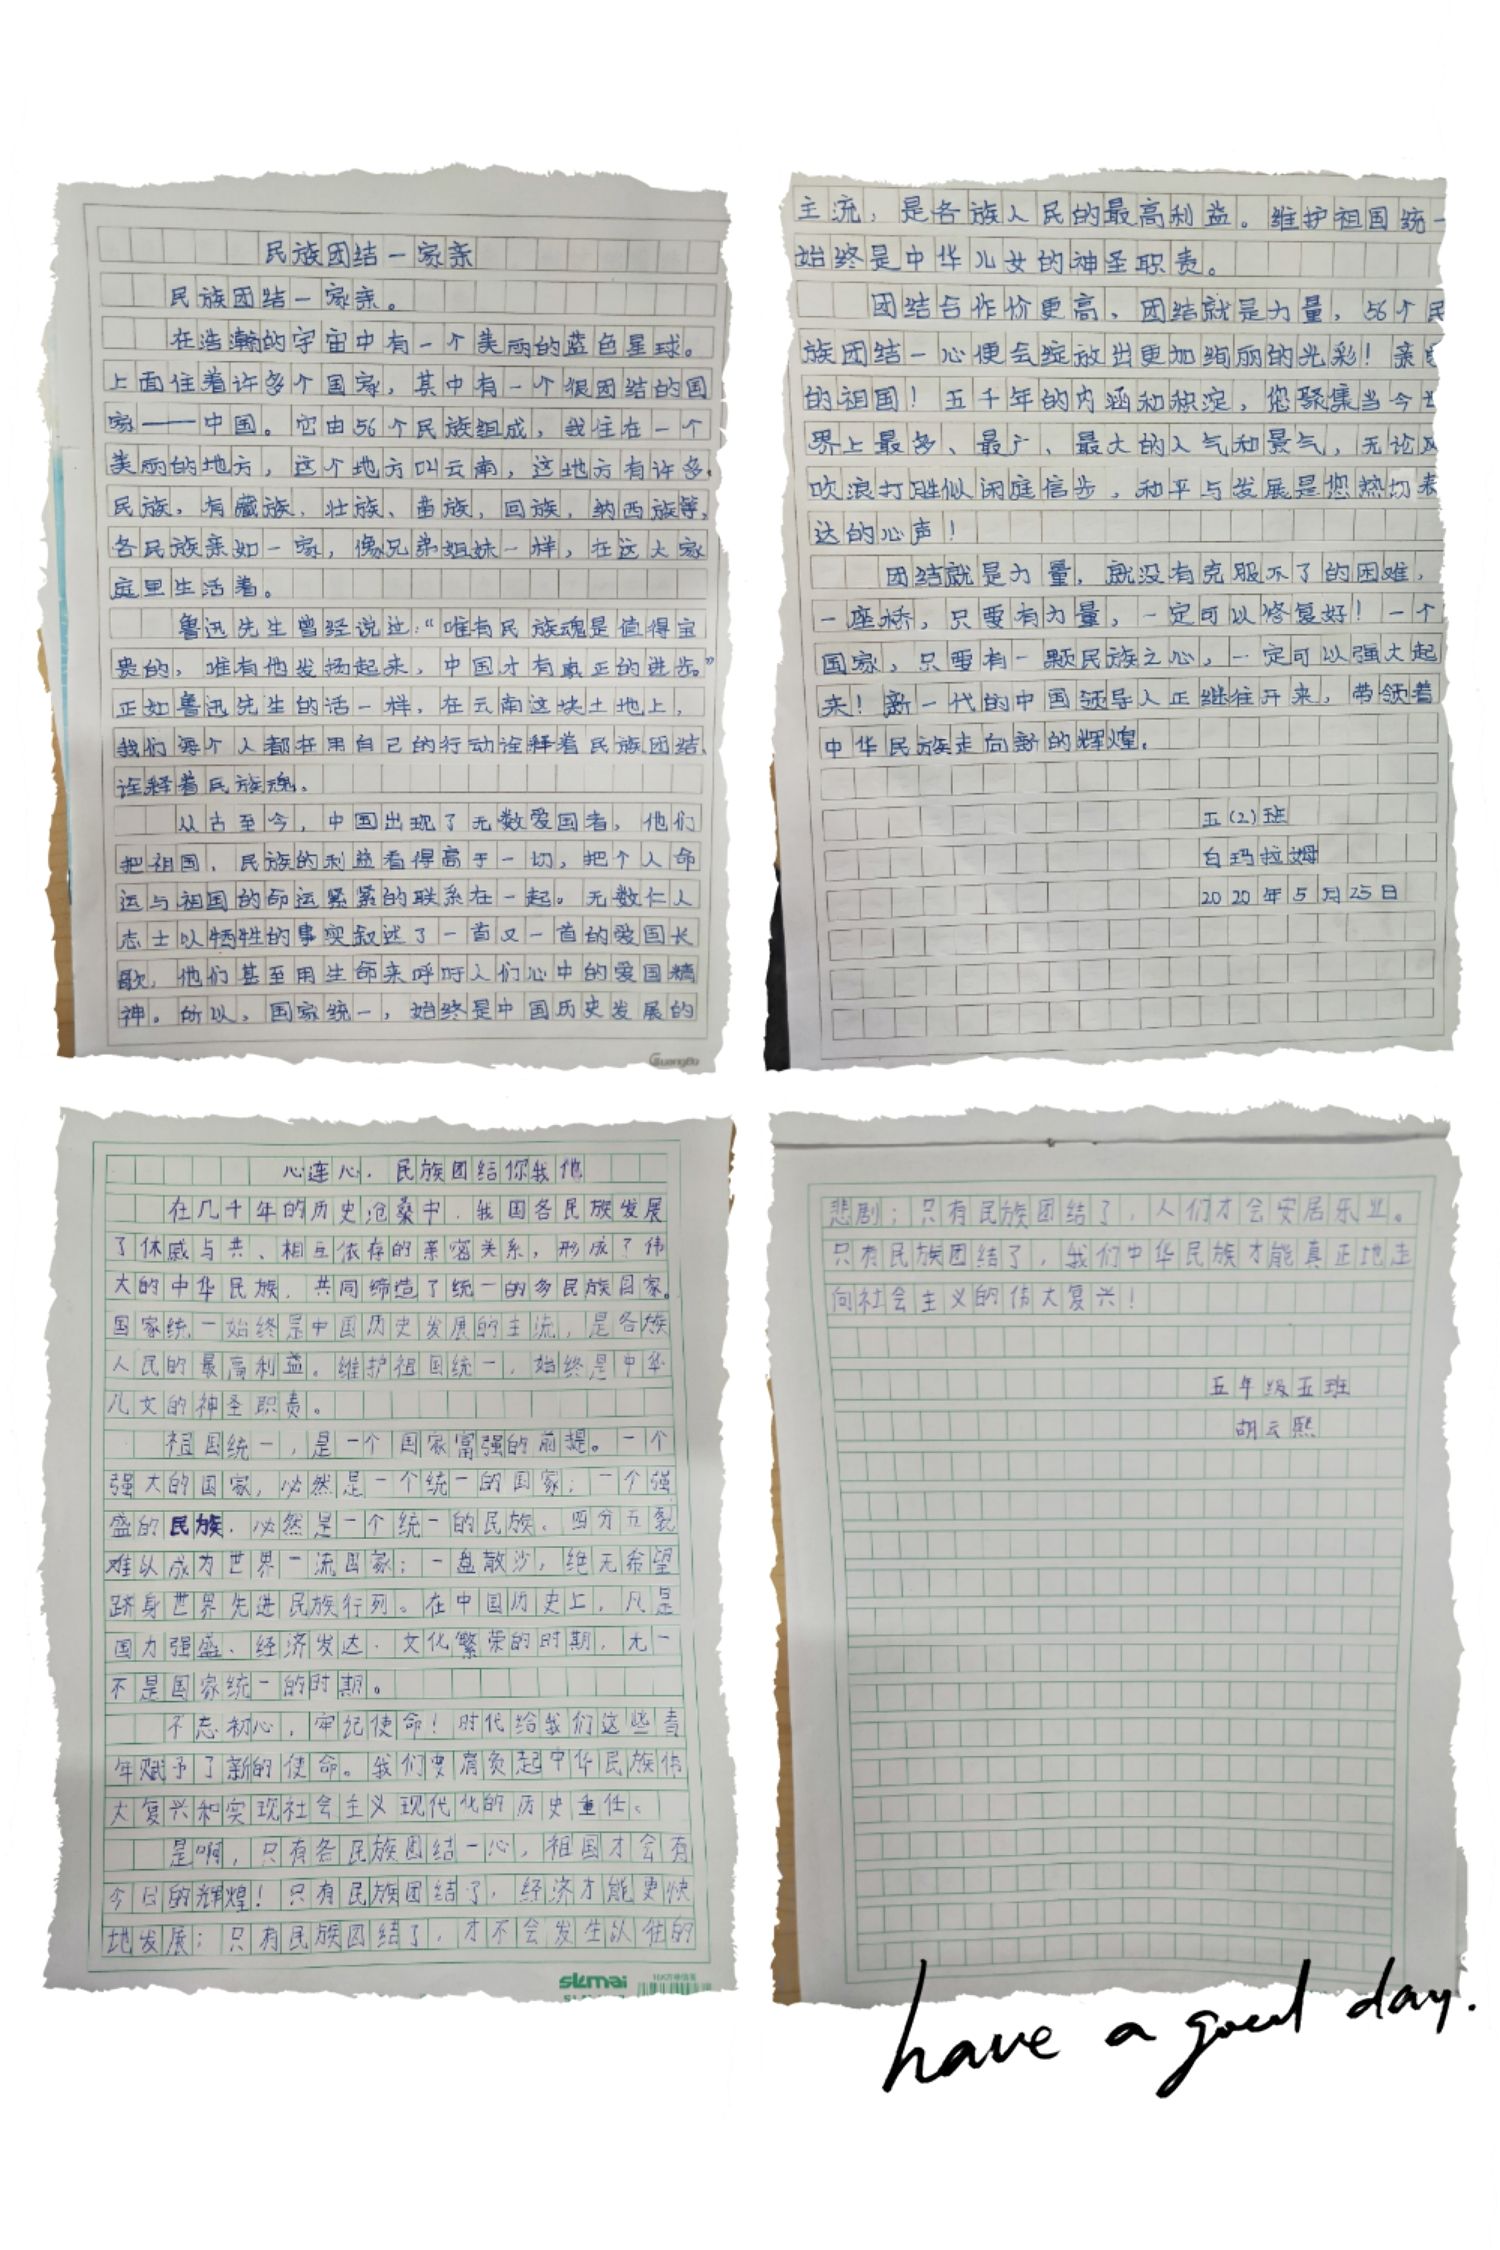 民族团结一家亲
民族团结一家亲。
在浩瀚的宇宙中有一个美丽的蓝色星球。
上面住着许多个国家，其中有一个很团结的国
家——中国。它由56个民族组成，我住在一个
美丽的地方，这个地方叫云南，这地方有许多
民族，有藏族、壮族、苗族，回族，纳西族等，
各民族亲如一家，像兄弟姐妹一样，在这大家
庭里生活着。
鲁迅先生曾经说过：“唯有民族魂是值得宝
贵的，唯有他发扬起来，中国才有真正的进步。”
正如鲁迅先生的话一样，在云南这块土地上，
我们每个人都在用自己的行动诠释着民族团结，
诠释着民族魂。
从古至今，中国出现了无数爱国者，他们
把祖国、民族的利益看得高于一切，把个人命
运与祖国的命运紧紧的联系在一起。无数仁人
志士以牺牲的事实叙述了一首又一首的爱国长
歌，他们甚至用生命来呼吁人们心中的爱国精
神。所以，国家统一，始终是中国历史发展的
GuangBo
主流，是各族人民的最高利益。维护祖国统一
始终是中华儿女的神圣职责。
团结合作价更高，团结就是力量，56个民
族团结一心便会绽放出更加绚丽的光彩！亲
的祖国！五千年的内涵和积淀，您聚集当今世
界上最多、最广、最大的人气和景气，无论风
吹浪打胜似闲庭信步，和平与发展是您热切表
达的心声！
团结就是力量，就没有克服不了的困难，
一座桥，只要有力量，一定可以修复好！一个
国家，只要有一颗民族之心，一定可以强大起
来！新一代的中国领导人正继往开来，带领着
中华民族走向新的辉煌。
五(2)班
白玛拉姆
2020年5月25日
心连心，民族团结你我他
在几千年的历史沧桑中，我国各民族发展
了休戚与共、相互依存的亲密关系，形成了伟
大的中华民族，共同缔造了统一的多民族国家。
国家统一始终是中国历史发展的主流，是各族
人民的最高利益。维护祖国统一，始终是中华
儿女的神圣职责。
祖国统一，是一个国家富强的前提。一个
强大的国家，必然是一个统一的国家；一个强
盛的民族，必然是一个统一的民族。四分五裂
难以成为世界一流国家；一盘散沙，绝无希望
跻身世界先进民族行列。在中国历史上，凡是
国力强盛、经济发达、文化繁荣的时期，无一
不是国家统一的时期。
不忘初心，牢记使命！时代给我们这些青
年赋予了新的使命。我们要肩负起中华民族伟
大复兴和实现社会主义现代化的历史重任。
是啊，只有各民族团结一心，祖国才会有
今日的辉煌！只有民族团结了，经济才能更快
地发展；只有民族团结了，才不会发生以往的
skmai
悲剧；只有民族团结了，人们才会安居乐业。
只有民族团结了，我们中华民族才能真正地走
向社会主义的伟大复兴！
五年级五班
胡云熙
have a good day.